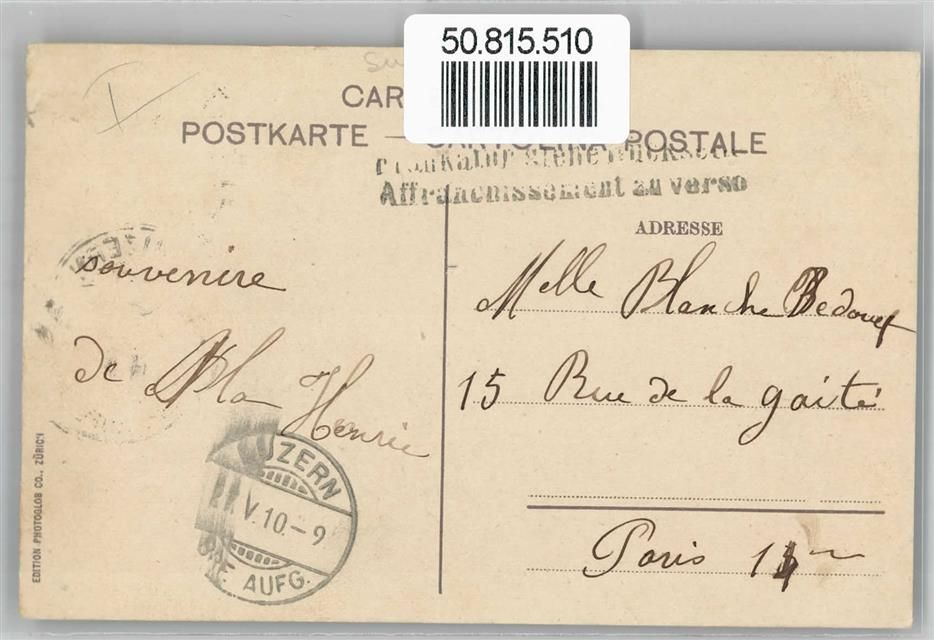 50.815.510
CAR
POSTKARTE — CARTOLINA POSTALE
Frankatur siehe Rückseite
Affranchissement au verso
ADRESSE
souvenire
de
Henrie
Melle Blanche
15 Rue de la gaité
Paris
LUZERN
V.10.-9
AUFG.
EDITION PHOTOGLOB CO., ZÜRICH